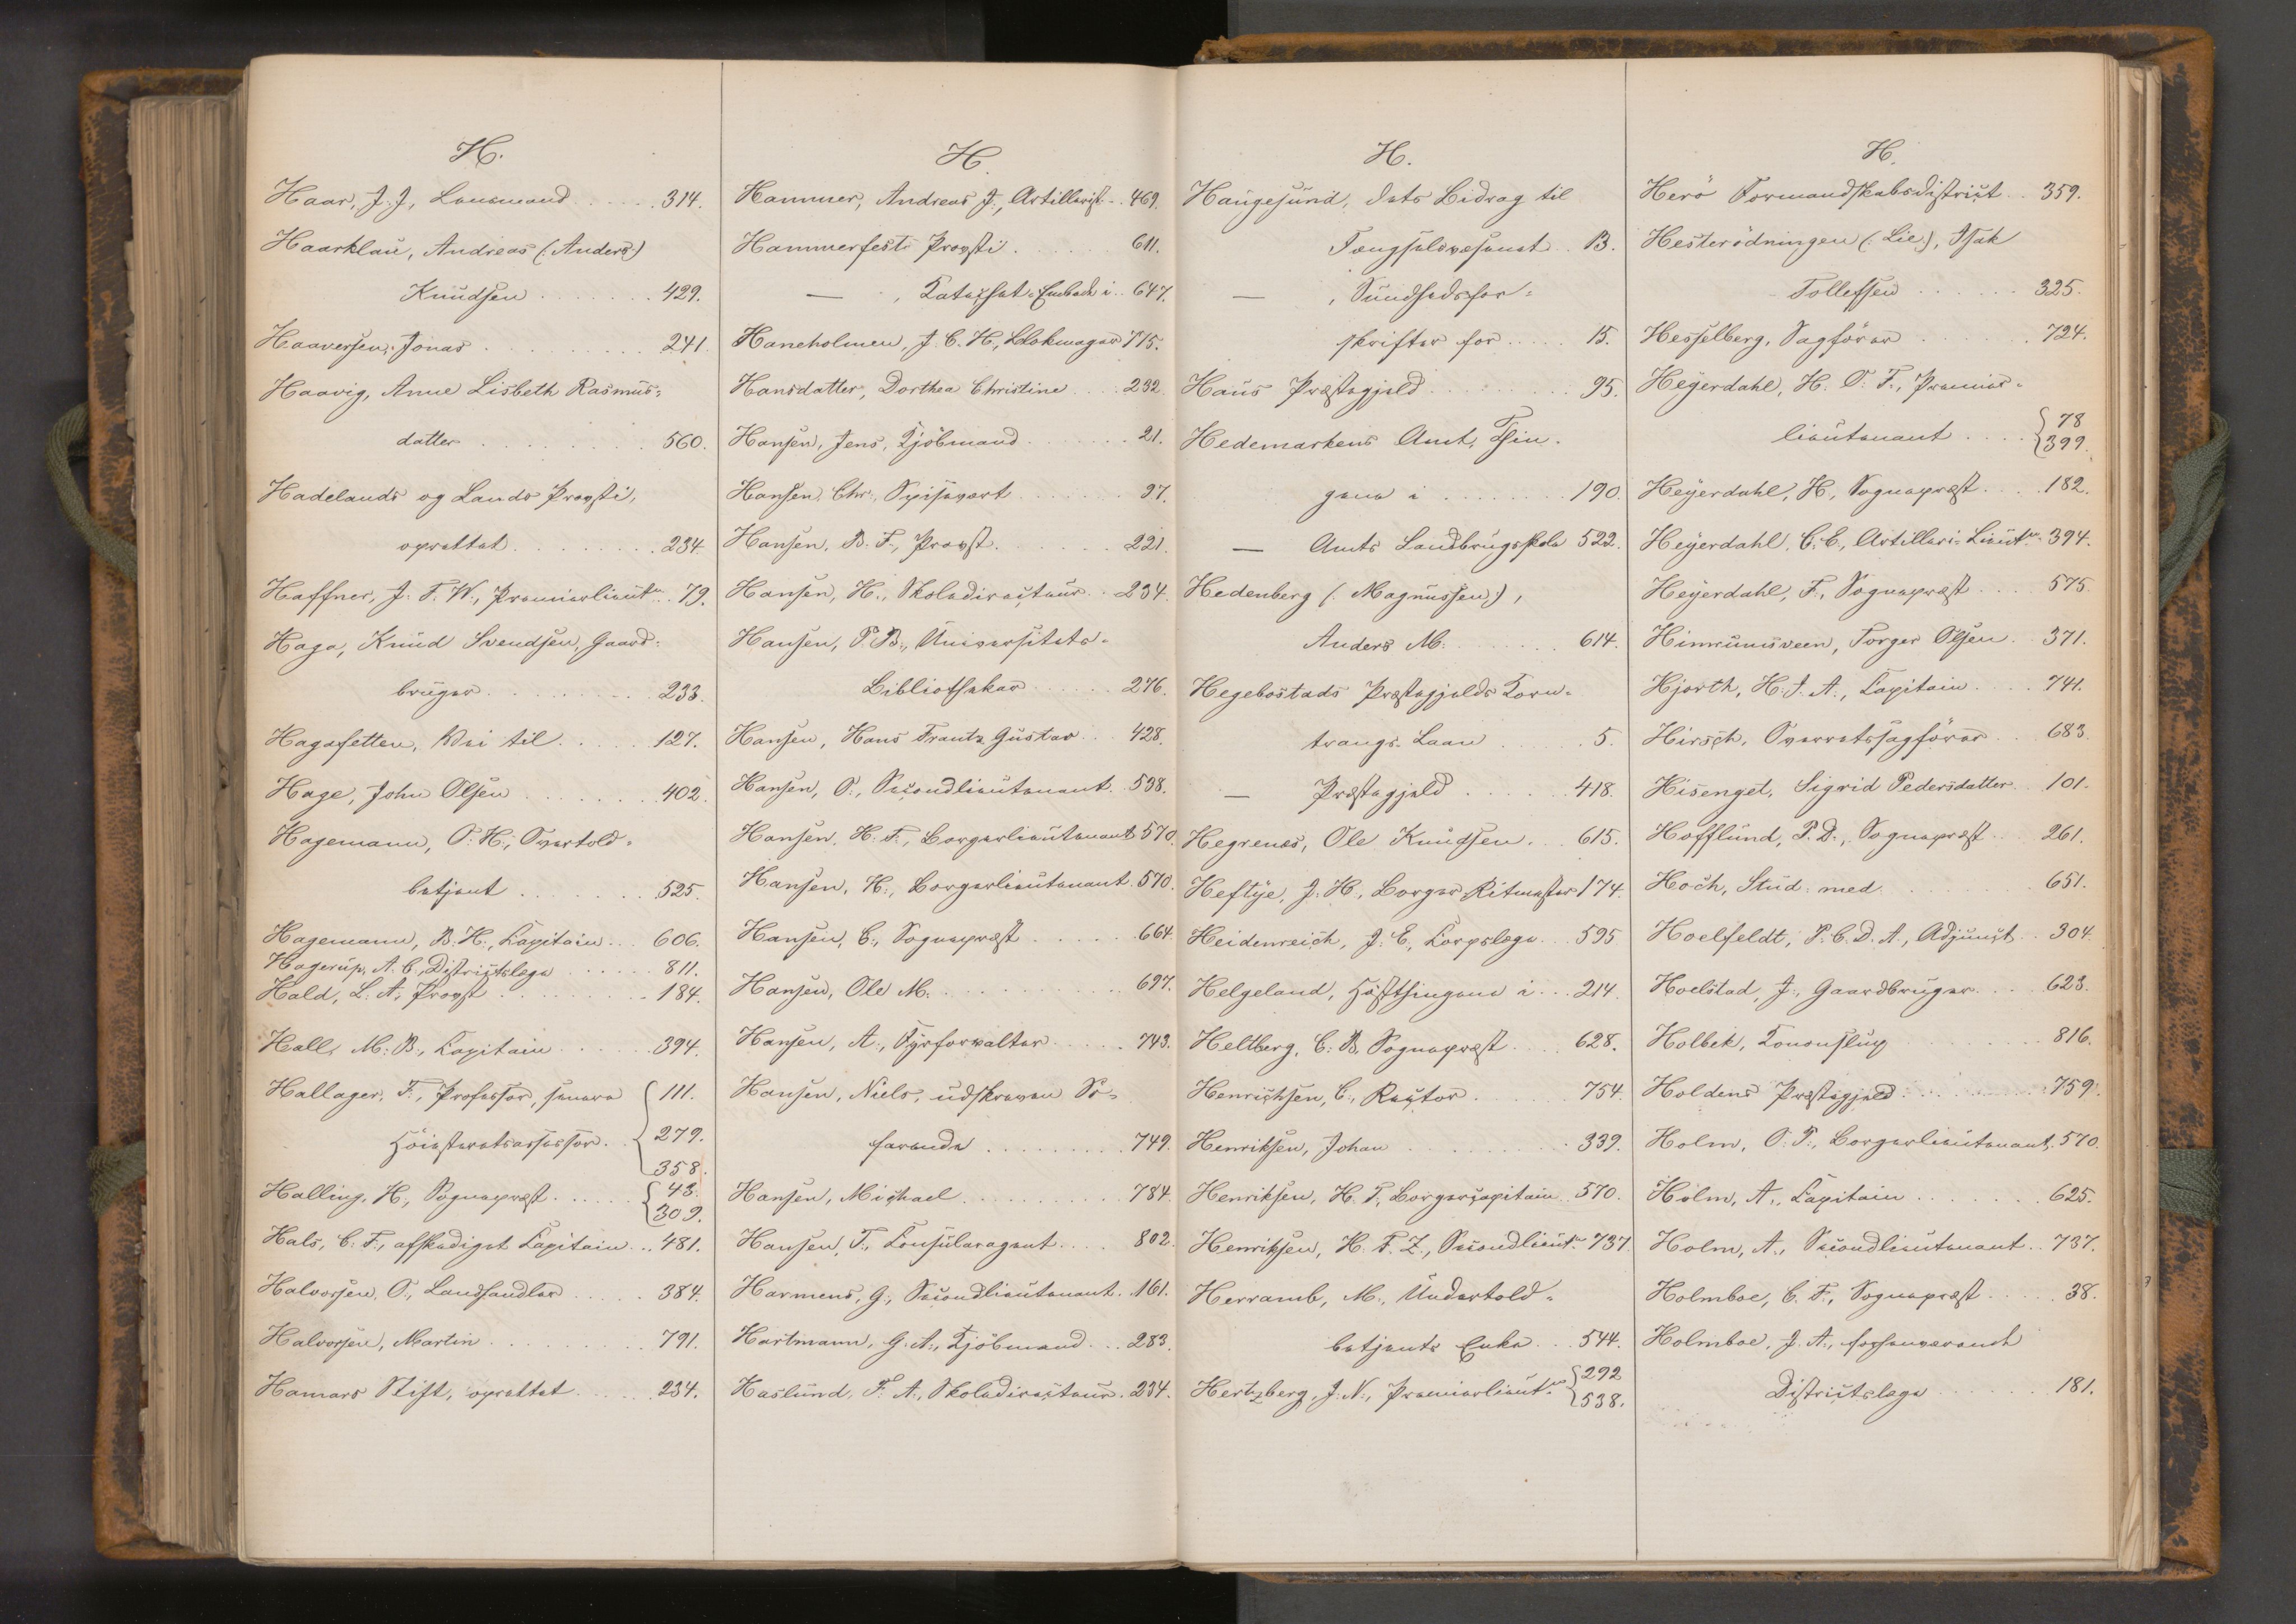 H.
Haar, J. J., Lensmand . . . . . 314.
Haarklau, Andreas (: Anders:)
Knudsen . . . . . . . 429.
Haaversen, Jonas . . . . . . . . . 241.
Haavig, Anne Lisbeth Rasmus-
datter . . . . . . . . 560.
Hadelands og Lands Provsti,
oprettet . . . . . . . . 234.
Haffner, J. F. W., Premierlieutn. . . 79.
Haga, Knud Svendsen, Gaard-
bruger . . . . . . . . . 233.
Hagasetten, Vei til . . . . . 127.
Hage, John Olsen . . . . . . . 402.
Hagemann, O. H., Overtold-
betjent . . . . . . . 525.
Hagemann, B. H., Capitain . . . 606.
Hagerup, A. C., Districtslæge . . . . . . 811.
Hald, L. A., Provst . . . . . . . . . 184.
Hall, M. B., Capitain . . . . . 394.
Hallager, F., Professor, senere { 111.
Höiesteretsassessor . . { 279.
358.
Halling, H., Sognepræst . . . . . { 43.
309.
Hals, C. F., afskediget Capitain . . 481.
Halvorsen, O., Landhandler . . . . . 384.
Halvorsen, Martin . . . . . . . . . 791.
Hamars Stift, oprettet . . . . . 234.
H.
Hammer, Andreas J., Artillerist . . 469.
Hammerfest Provsti . . . . . . . 611.
— , Catechet-Embede i . . 647.
Haneholmen, J. C. H., Klokmager 775.
Hansdatter, Dorthea Christine . . . . 232.
Hansen, Jens, Kjöbmand . . . . . . . 21.
Hansen, Chr., Spisevært . . . . . . . 37.
Hansen, B. F., Provst . . . . . . . 221.
Hansen, H., Skoledirecteur . . 234.
Hansen, P. B., Universitets-
Bibliothekar . . . . . . 276.
Hansen, Hans Frantz Gustav . . . 428.
Hansen, O., Secondlieutenant . . 538.
Hansen, H. F., Borgerlieutenant 570.
Hansen, H., Borgerlieutenant . 570.
Hansen, C., Sognepræst . . . . . . 664.
Hansen, Ole M. . . . . . . . . . . 697.
Hansen, A., Fyrforvalter . . . . . 743.
Hansen, Niels, udskreven Sö-
farende . . . . . . . . . 749.
Hansen, Michael . . . . . . . . . . 784.
Hansen, F., Consularagent . . . . 802.
Harmens, G., Secondlieutenant . . 161.
Hartmann, G. A., Kjöbmand . . . 283.
Haslund, F. A., Skoledirecteur . 234.
H.
Haugesund, dets Bidrag til
Fængselsvesenet . 13.
— , Sundhedsfor-
skrifter for . . . . 15.
Haus Præstegjeld . . . . . . . . . 95.
Hedemarkens Amt, Thin-
gene i . . . . . . . 190.
— Amts Landbrugsskole 522.
Hedenberg (: Magnussen:),
Anders M. . . . . . . . 614.
Hegebostads Præstegjelds Korn-
trangs-Laan . . . . . 5.
— Præstegjeld . . . . . 418.
Hegrenæs, Ole Knudsen . . . 615.
Heftye, J. H., Borger-Ritmester 174.
Heidenreich, J. E., Corpslæge . . 595
Helgeland, Hösttingene i . . . 214.
Heltberg, C. B., Sognepræst . . . . 628.
Henrichsen, C., Rector . . . . . 754.
Henriksen, Johan . . . . . . . . . 339.
Henriksen, H. F., Borgercapitain . . 570.
Henriksen, H. F. Z., Secondlieutn. 737.
Herramb, M., Undertold-
betjents Enke . . . 544.
Hertzberg, J. N., Premierlieutn. { 292
538.
H.
Herö Formandskabsdistrict . . 359.
Hesterödningen (: Lie:), Isak
Tollefsen . . . . . . 325.
Hesselberg, Sagförer . . . . . . 724.
Heyerdahl, H. O. F., Premier-
lieutenant . . . . { 78
399.
Heyerdahl, H., Sognepræst . . . . 182.
Heyerdahl, C. C., Artilleri-Lieutn. 394.
Heyerdahl, F., Sognepræst . . . . 575.
Himrumsveen, Torger Olsen . . 371.
Hjorth, H. J. A., Capitain . . . . 741.
Hirsch, Overretssagförer . . . 683.
Hisenget, Sigrid Pedersdatter . . 101.
Hofflund, P. D., Sognepræst . . 261.
Hoch, Stud. med. . . . . . . . 651.
Hoelfeldt, P. C. D. A., Adjunct . . 304.
Hoelstad, J., Gaardbruger . . . . 623.
Holbek, Kononslup 816.
Holdens Præstegjeld . . . . . . . . 759.
Holm, O. F., Borgerlieutenant . 570.
Holm, A., Capitain . . . . . . . 625.
Holm, A., Secondlieutenant . . 737.
Holmboe, C. F., Sognepræst . . . . . 38.
Holmboe, J. A., forhenværende
Districtslæge . . . . . . 181.